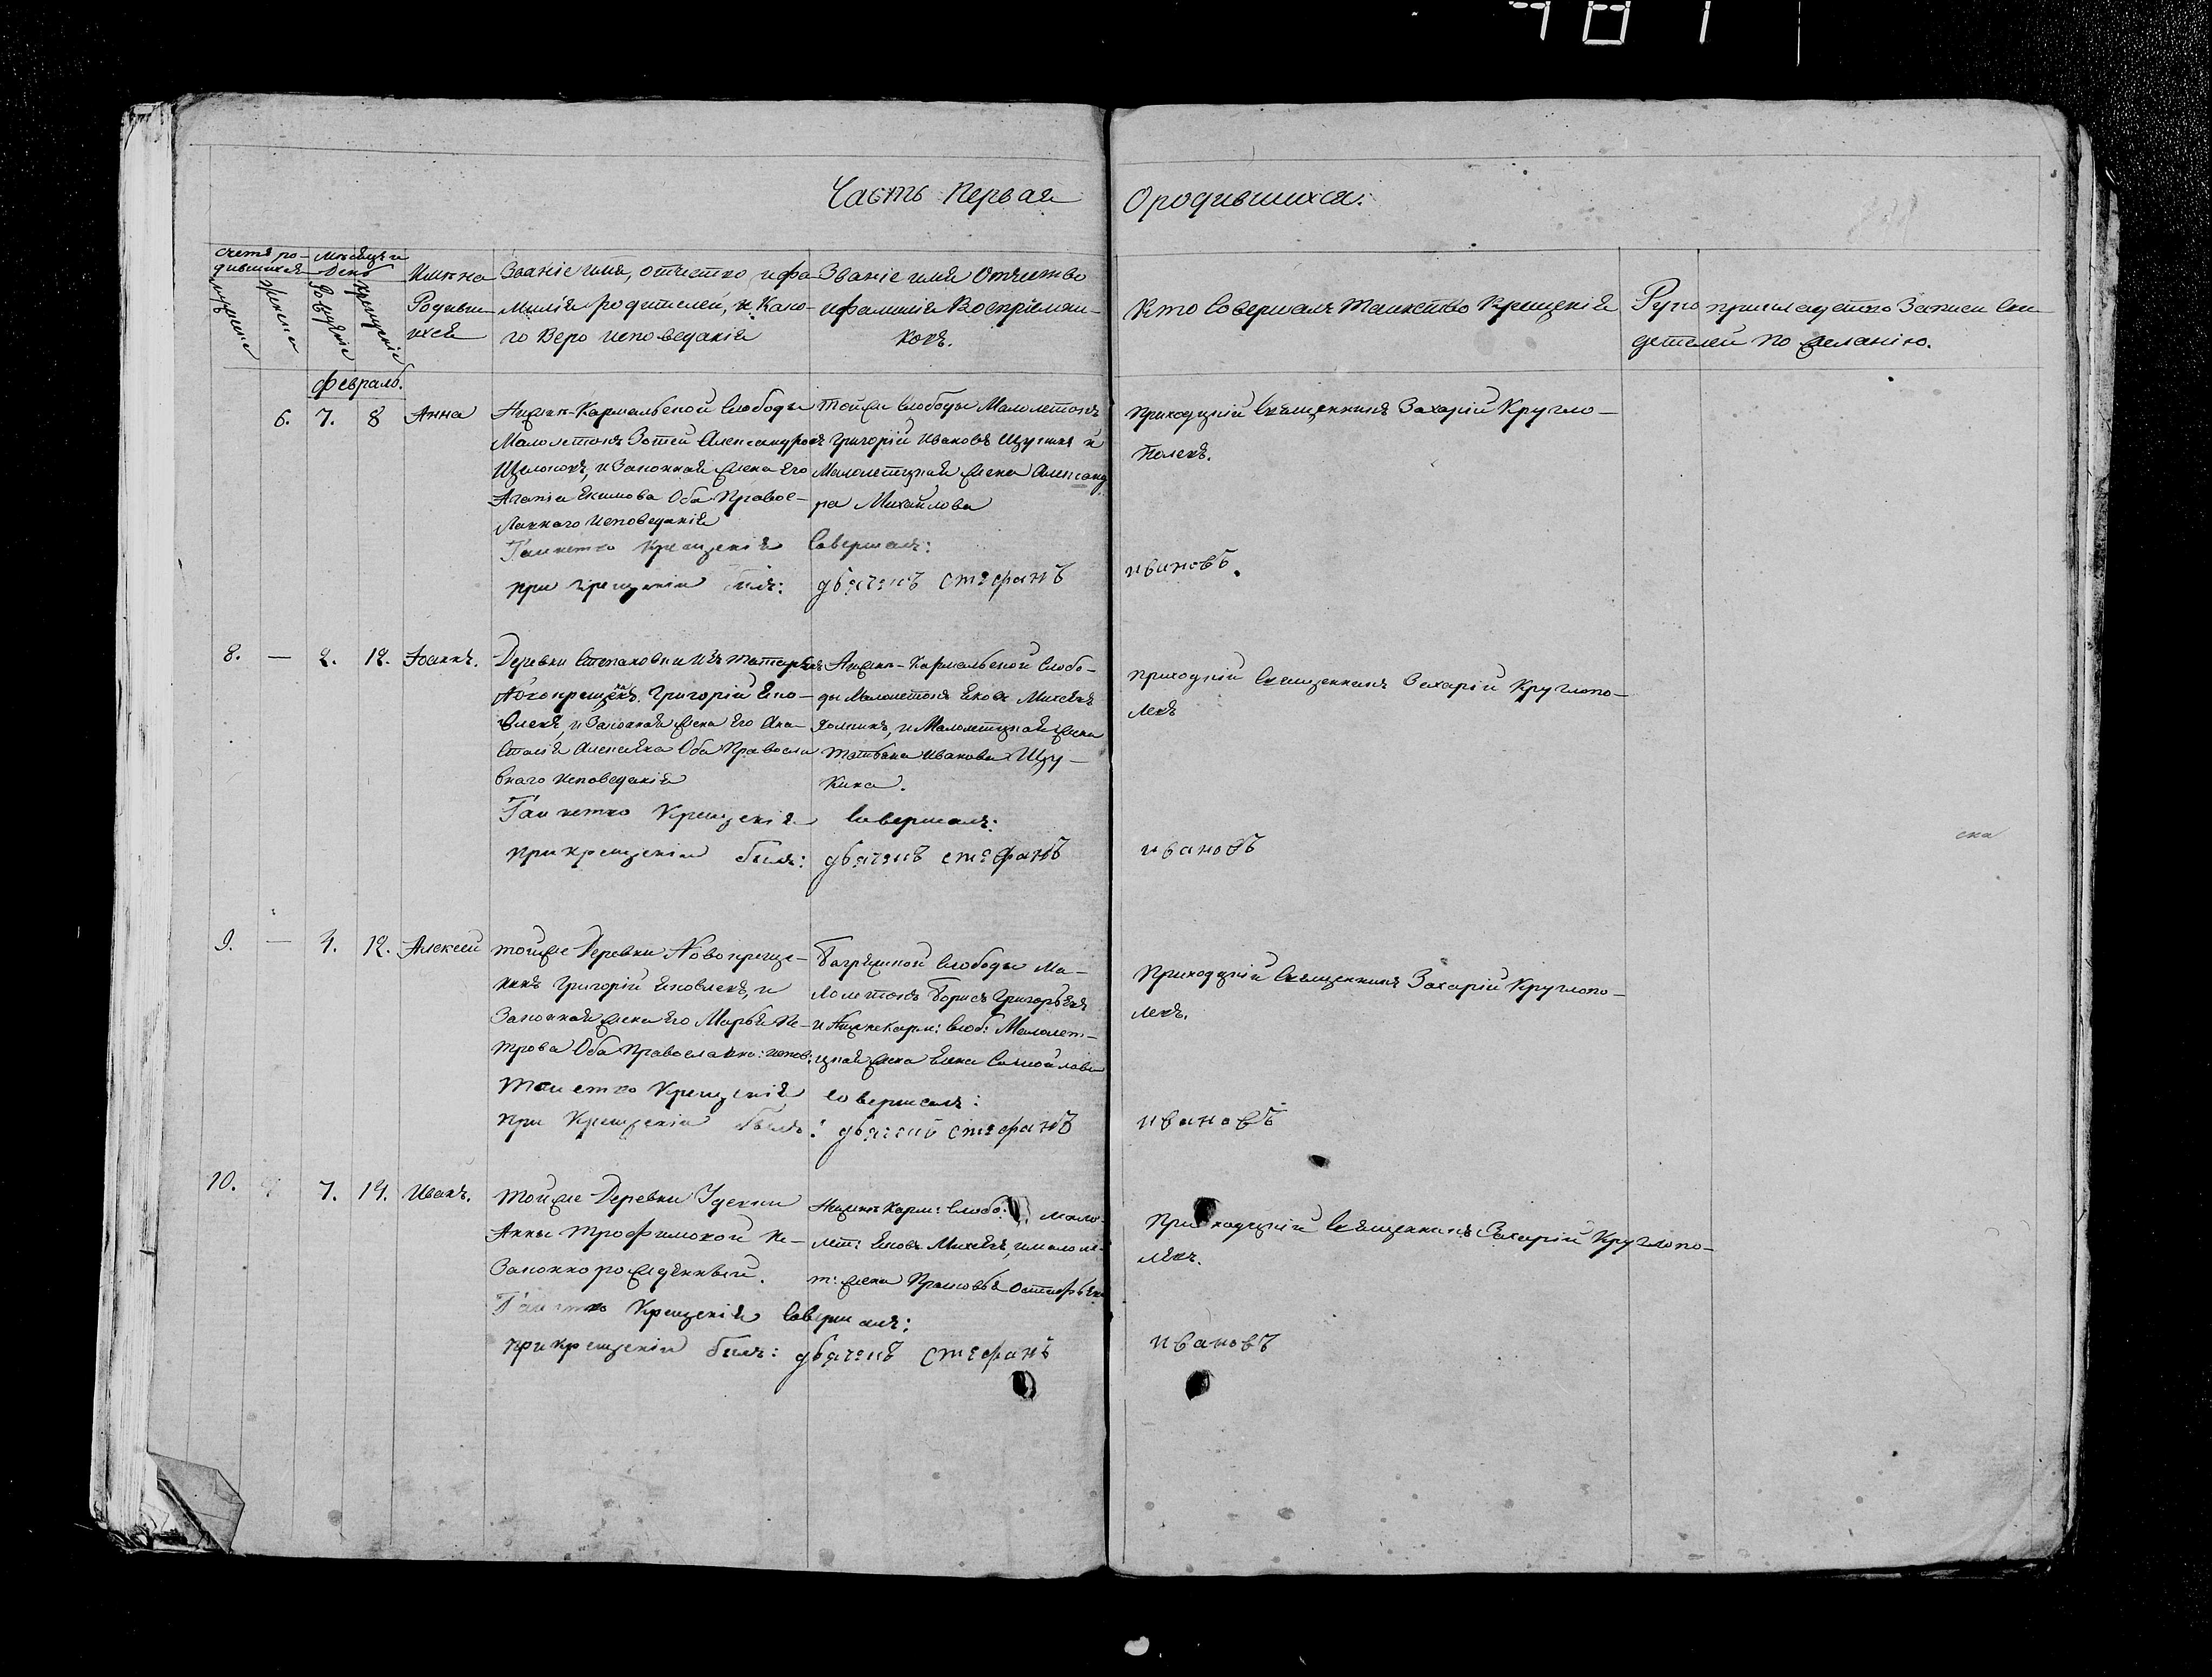 Часть Первая
О родившихся.
счетъ ро-
дившихся
мѣсяцъ и
день
мужеска
женска
рожденія
крещенія
Имѣна
Родивши-
ихся
Званіе имя, отчество, и фа-
милія родителей, и Како-
го Вероисповеданія
Званіе имя Отчество
и фамилія Воспріемни-
ковъ.
Кто Совершалъ Таинство Крещенія
Рукоприкладство Записи Сви-
детелей по желанію.
февраль.
6. 7. 8 Анна
Нижне-Кармальской Слободы
Малолетокъ Зотей Александровъ
и Законная жена его
Агапія Екимова Оба Правос-
лавнаго исповеданія
Тойже Слободы Малолетокъ
Григорій Ивановъ Щукинъ и
Малолетцкая жена Александ
ра Михайлова
Приходцкій Священникъ Захарій Кругло-
полевъ.
Таинство Крещенія Совершалъ:
при крещеніи былъ: дьячекъ стефанъ
ивановъ.
8. — 2. 12. Іоаннъ.
Деревни Степановки изъ татаръ
Новокрещенъ Григорій Яко-
влевъ, и Законная жена Его Ана-
стасія Алексѣева Оба Правосла
внаго исповеданія
Нижне-Кармальской Слобо-
ды Малолетокъ Яковъ Михѣевъ
и Малолетцкая жена
Татьяна Иванова Щу-
кина.
Приходцкій Священникъ Захарій Круглопо-
левъ
Таинство Крещенія Совершалъ:
при крещеніи былъ: дьячекъ стефанъ
ивановъ
9. — 4. 12. Алексей
тойже Деревни Новокреще-
нинъ Григорій Яковлевъ, и
Законная жена его Марья Пе-
трова Оба Православна: испов:
Багряжской Слободы Ма-
лолетокъ Борисъ Григорьевъ
и Нижнекарм: Слоб: Малолет-
цкая жена Елена Самойлова
Приходцкій Священникъ Захарій Круглопо-
левъ.
Таинство Крещенія Совершалъ:
при Крещеніи былъ: дьячекъ стефанъ
ивановъ
10. 7. 14. Иванъ.
Тойже Деревни
Анны Трофимовой Не-
законнорожденный.
Нижне Карм: Слобо: мало-
лет: Яковъ Михѣевъ, и малоле-
т: жена Прасковья
Приходцкій Священникъ Захарій Круглопо-
левъ.
Таинство Крещенія Совершалъ:
при крещеніи былъ: дьячекъ стефанъ
ивановъ